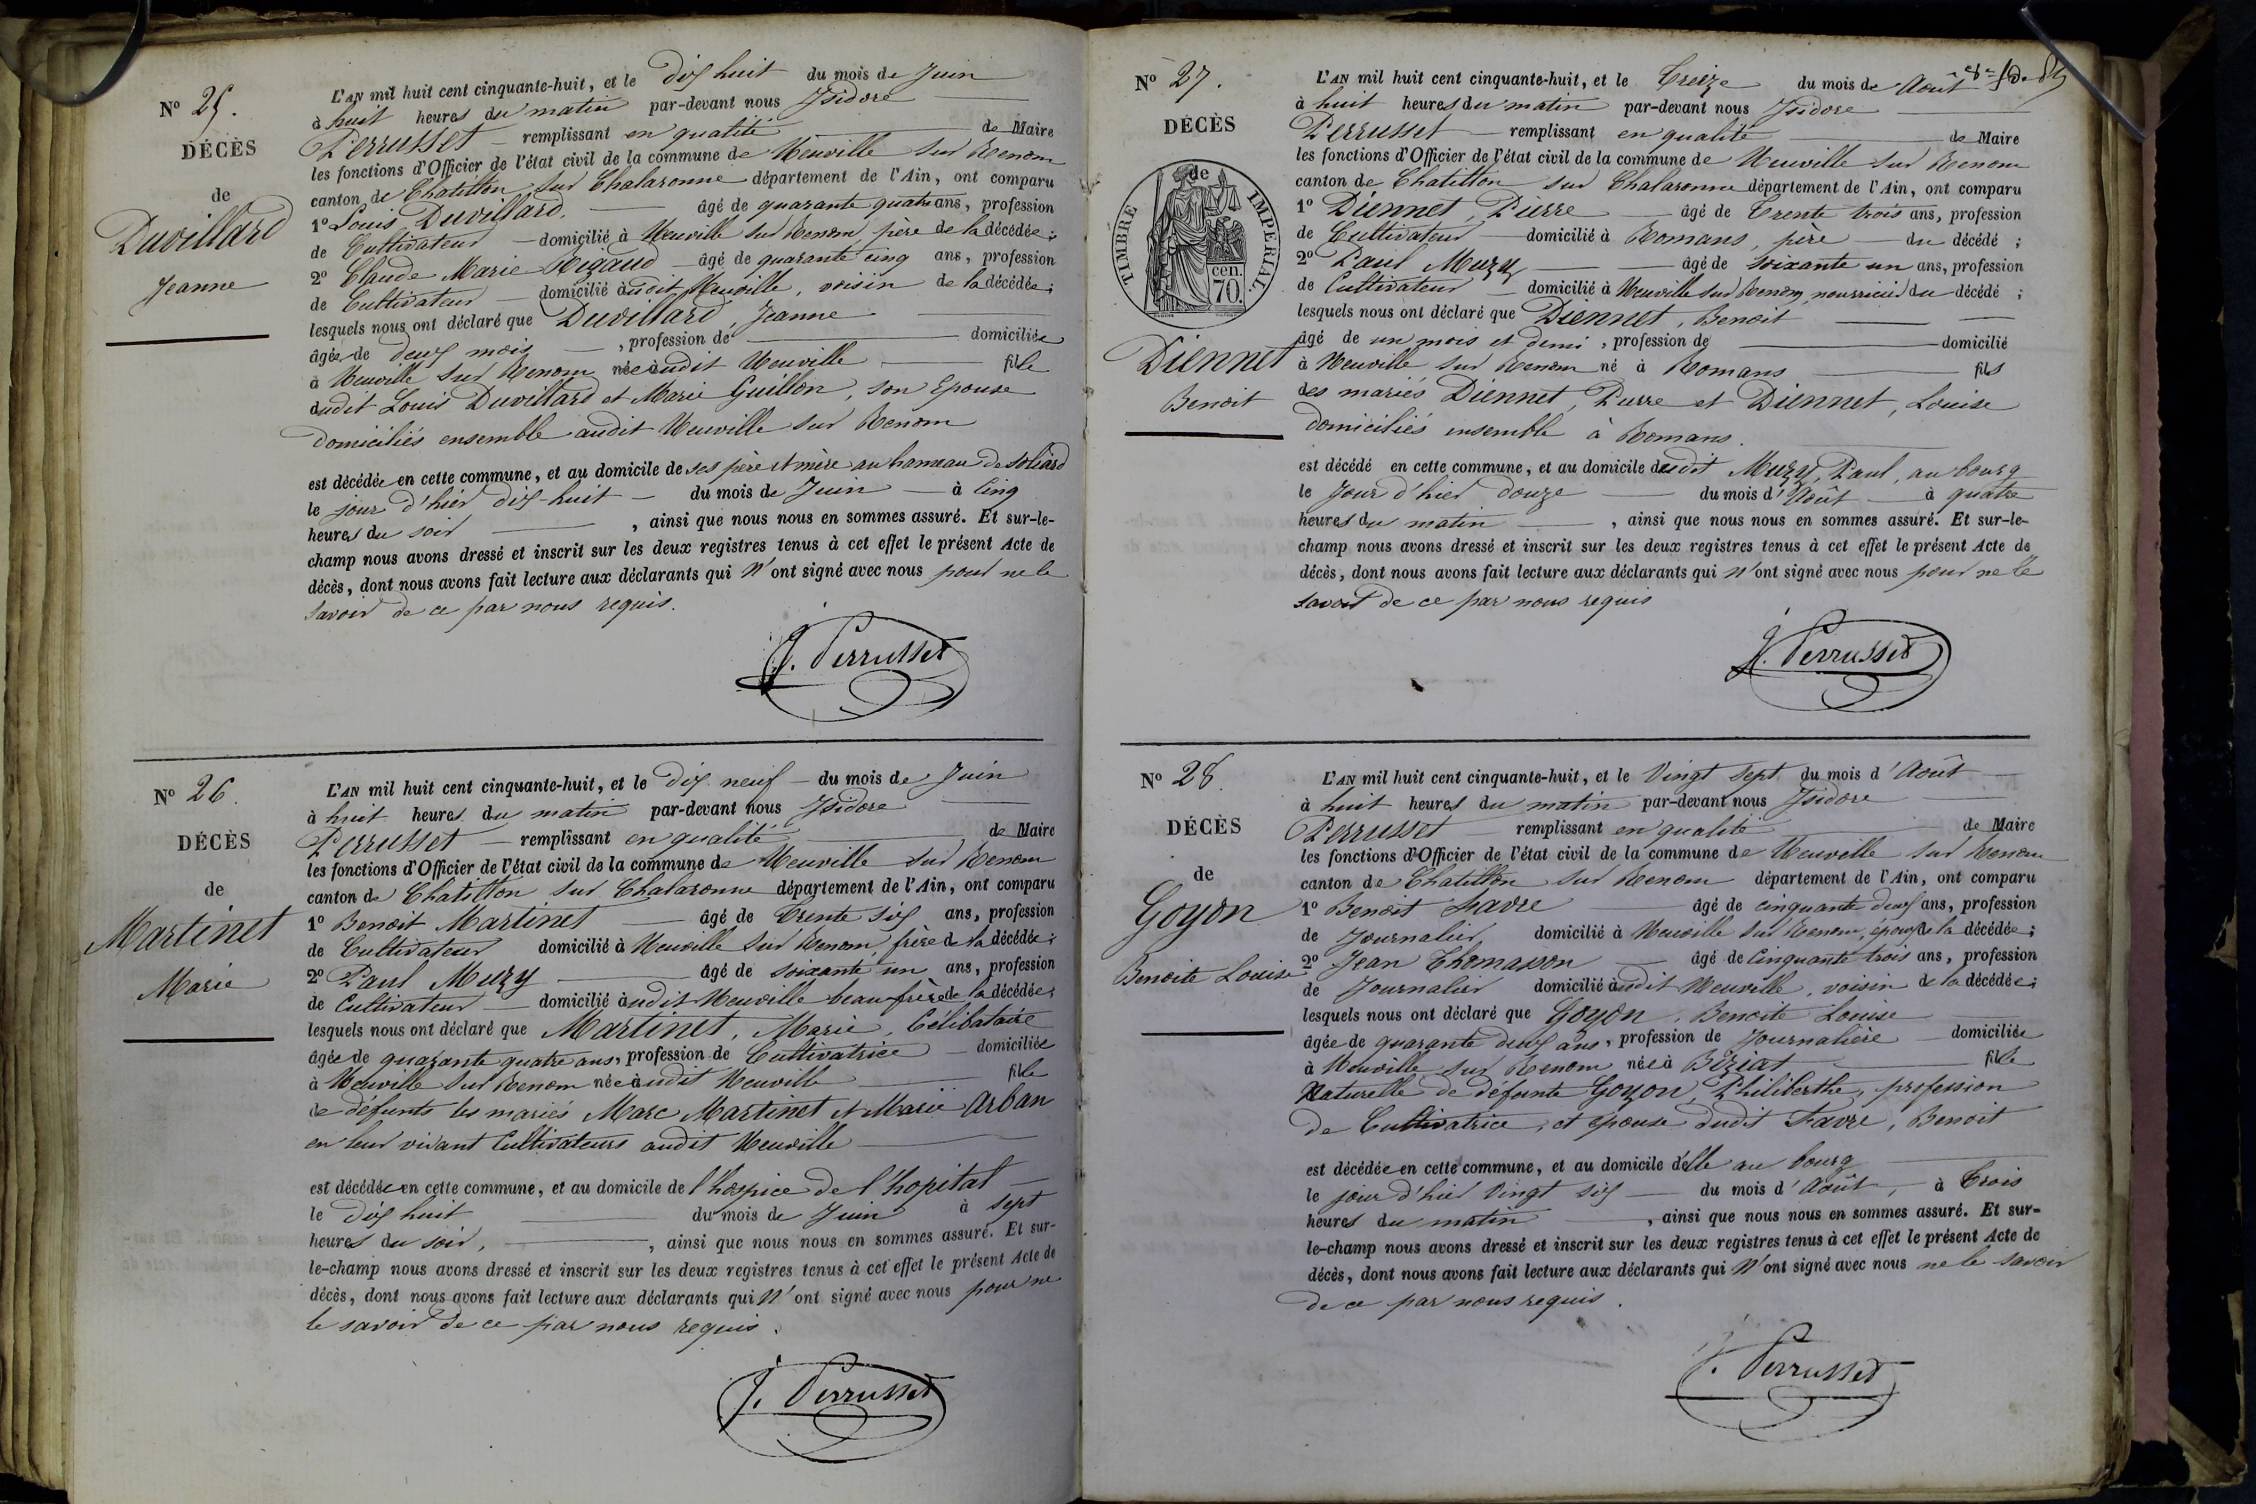 N° 25.
DÉCÈS
de
Duvillard
Jeanne
L'AN mil huit cent cinquante-huit, et le dix huit du mois de Juin
à huit heures du matin par-devant nous Isidore
Perrusset remplissant en qualité de Maire
les fonctions d'Officier de l'état civil de la commune de Neuville sur Renom
canton de Chatillon sur Chalaronne département de l'Ain, ont comparu
1° Louis Duvillard, âgé de quarante quatre ans, profession
de Cultivateur domicilié à Neuville sur Renom, père de la décédée ;
2° Claude Marie Rigaud âgé de quarante cinq ans, profession
de Cultivateur domicilié audit Neuville, voisin de la décédée ;
lesquels nous ont déclaré que Duvillard, Jeanne
âgée de deux mois , profession de domiciliée
à Neuville sur Renom née audit Neuville fille
dudit Louis Duvillard et Marie Guillon, son Epouse
domiciliés ensemble audit Neuville sur Renom
est décédée en cette commune, et au domicile de ses père et mère au hameau de
le jour d'hier dix-huit du mois de Juin à cinq
heures du soir , ainsi que nous nous en sommes assuré. Et sur-le-
champ nous avons dressé et inscrit sur les deux registres tenus à cet effet le présent Acte de
décès, dont nous avons fait lecture aux déclarants qui n'ont signé avec nous pour ne le
savoir de ce par nous requis.
J. Perrusset
N° 26.
DÉCÈS
de
Martinet
Marie
L'AN mil huit cent cinquante-huit, et le dix neuf du mois de Juin
à huit heures du matin par-devant nous Isidore
Perrusset remplissant en qualité de Maire
les fonctions d'Officier de l'état civil de la commune de Neuville sur Renom
canton de Chatillon sur Chalaronne département de l'Ain, ont comparu
1° Benoit Martinet âgé de trente six ans, profession
de Cultivateur domicilié à Neuville sur Renom, frère de la décédée ;
2° Paul Muzy âgé de soixante un ans, profession
de Cultivateur domicilié audit Neuville beau-frère de la décédée ;
lesquels nous ont déclaré que Martinet, Marie, Célibataire
âgée de quarante quatre ans, profession de Cultivatrice domiciliée
à Neuville sur Renom née audit Neuville fille
de défunts les mariés Marc Martinet et Marie Arban
en leur vivant Cultivateurs audit Neuville
est décédée en cette commune, et au domicile de l'hospice de l'hopital
le dix huit du mois de Juin à sept
heures du soir, , ainsi que nous nous en sommes assuré. Et sur-
le-champ nous avons dressé et inscrit sur les deux registres tenus à cet effet le présent Acte de
décès, dont nous avons fait lecture aux déclarants qui n'ont signé avec nous pour ne
le savoir de ce par nous requis.
J. Perrusset
N° 27.
DÉCÈS
de
TIMBRE IMPÉRIAL
70. cen.
Diennet
Benoit
L'AN mil huit cent cinquante-huit, et le treize du mois de Août
à huit heures du matin par-devant nous Isidore
Perrusset remplissant en qualité de Maire
les fonctions d'Officier de l'état civil de la commune de Neuville sur Renom
canton de Chatillon sur Chalaronne département de l'Ain, ont comparu
1° Diennet, Pierre âgé de trente trois ans, profession
de Cultivateur domicilié à Romans, père du décédé ;
2° Paul Muzy âgé de soixante un ans, profession
de Cultivateur domicilié à Neuville sur Renom, nourricier du décédé ;
lesquels nous ont déclaré que Diennet, Benoit
âgé de un mois et demi , profession de domicilié
à Neuville sur Renom né à Romans fils
des mariés Diennet, Pierre et Diennet, Louise
domiciliés ensemble à Romans.
est décédé en cette commune, et au domicile dudit Muzy, Paul, au bourg
le jour d'hier douze du mois d'Août à quatre
heures du matin , ainsi que nous nous en sommes assuré. Et sur-le-
champ nous avons dressé et inscrit sur les deux registres tenus à cet effet le présent Acte de
décès, dont nous avons fait lecture aux déclarants qui n'ont signé avec nous pour ne le
savoir de ce par nous requis
J. Perrusset
N° 28.
DÉCÈS
de
Goyon
Benoite Louise
L'AN mil huit cent cinquante-huit, et le vingt sept du mois d'Août
à huit heures du matin par-devant nous Isidore
Perrusset remplissant en qualité de Maire
les fonctions d'Officier de l'état civil de la commune de Neuville sur Renom
canton de Chatillon sur Renom département de l'Ain, ont comparu
1° Benoit Favre âgé de cinquante deux ans, profession
de Journalier, domicilié à Neuville sur Renom, époux de la décédée ;
2° Jean Thomasson âgé de cinquante trois ans, profession
de Journalier domicilié audit Neuville, voisin de la décédée ;
lesquels nous ont déclaré que Goyon, Benoite Louise
âgée de quarante deux ans, profession de Journalière domiciliée
à Neuville sur Renom née à Biziat fille
Naturelle de défunte Goyon, Philiberthe, profession
de Cultivatrice, et épouse dudit Favre, Benoit
est décédée en cette commune, et au domicile d'elle au bourg
le jour d'hier vingt six du mois d'Août, à trois
heures du matin , ainsi que nous nous en sommes assuré. Et sur-
le-champ nous avons dressé et inscrit sur les deux registres tenus à cet effet le présent Acte de
décès, dont nous avons fait lecture aux déclarants qui n'ont signé avec nous ne le savoir
de ce par nous requis.
J. Perrusset